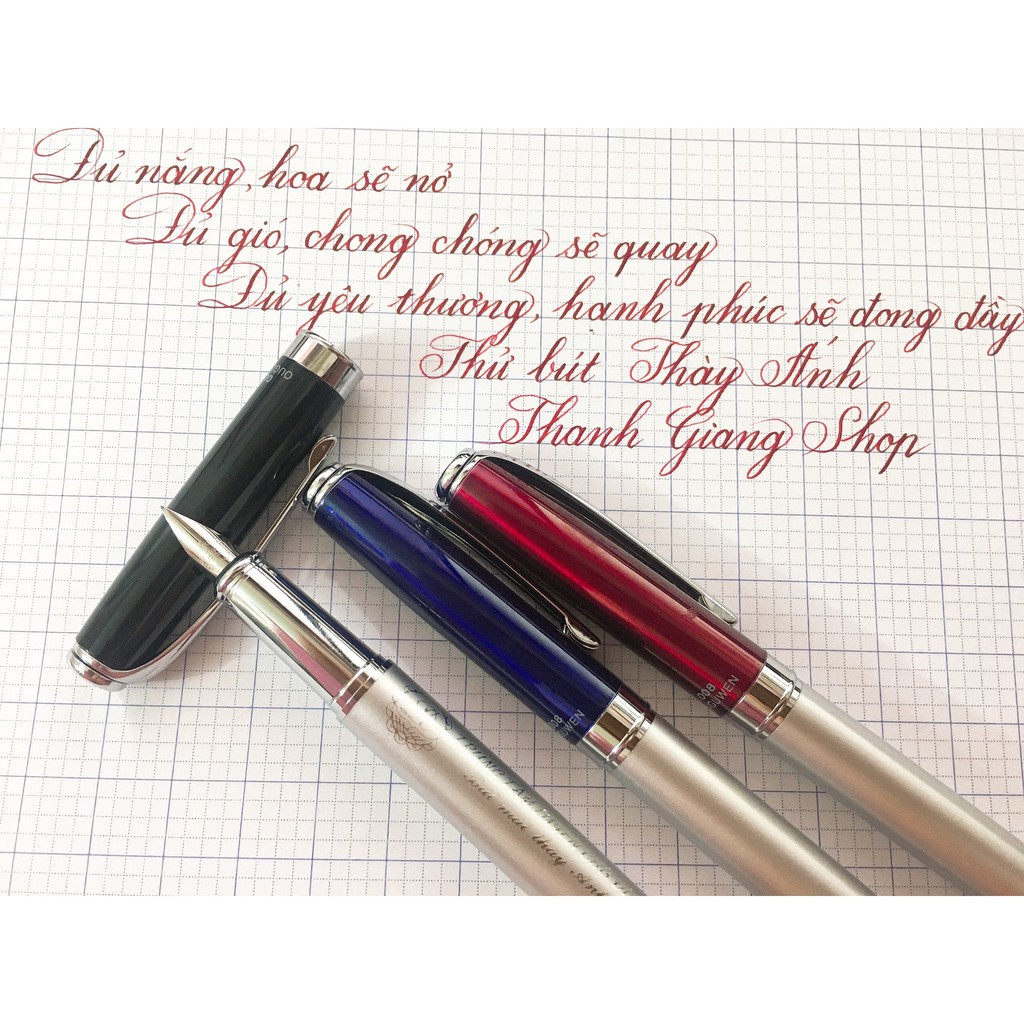 Đủ nắng, hoa sẽ nở
Đủ gió, chong chóng sẽ quay
Đủ yêu thương, hạnh phúc sẽ đong đầy
Thử bút Thày Ánh
Thanh Giang Shop
008
GUWEN
008
GUWEN
bút mài thày Ánh